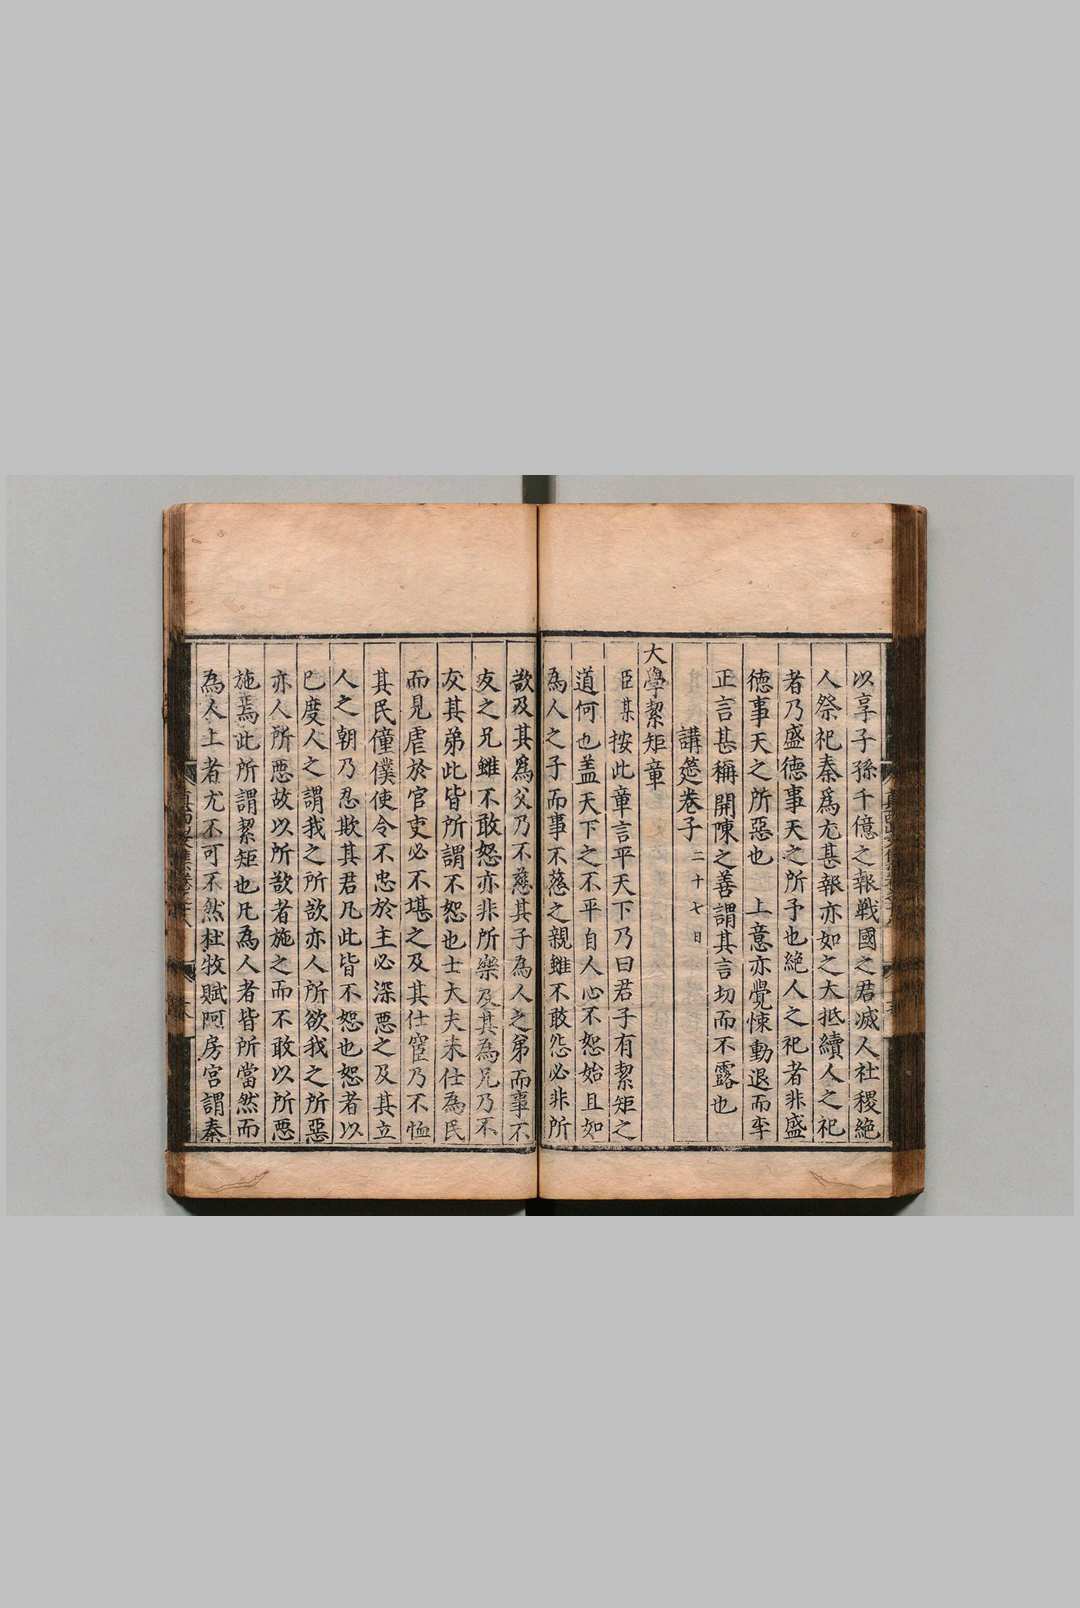 以享子孫千億之報戰國之君滅人社稷絶
人祭祀秦爲尤甚報亦如之大抵續人之祀
者乃盛德事天之所予也絶人之祀者非盛
德事天之所惡也 上意亦覺悚動退而李
正言甚稱開陳之善謂其言切而不露也
講筵卷子二十七日
大學絜矩章
臣某按此章言平天下乃曰君子有絜矩之
道何也盖天下之不平自人心不恕始且如
為人之子而事不慈之親雖不敢怨必非所
欲及其爲父乃不慈其子為人之弟而事不
友之兄雖不敢怒亦非所樂及其為兄乃不
友其弟此皆所謂不恕也士大夫未仕為民
而見虐於官吏必不堪之及其仕宦乃不恤
其民僮僕使令不忠於主必深惡之及其立
人之朝乃忍欺其君凡此皆不恕也恕者以
己度人之謂我之所欲亦人所欲我之所惡
亦人所惡故以所欲者施之而不敢以所惡
施焉此所謂絜矩也凡為人者皆所當然而
為人上者尤不可不然杜牧賦阿房宮謂秦